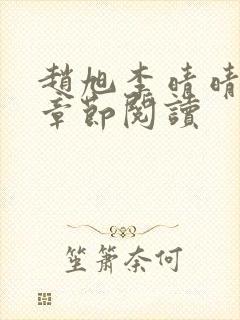 趙旭李晴晴
章節閱讀
笙簫奈何